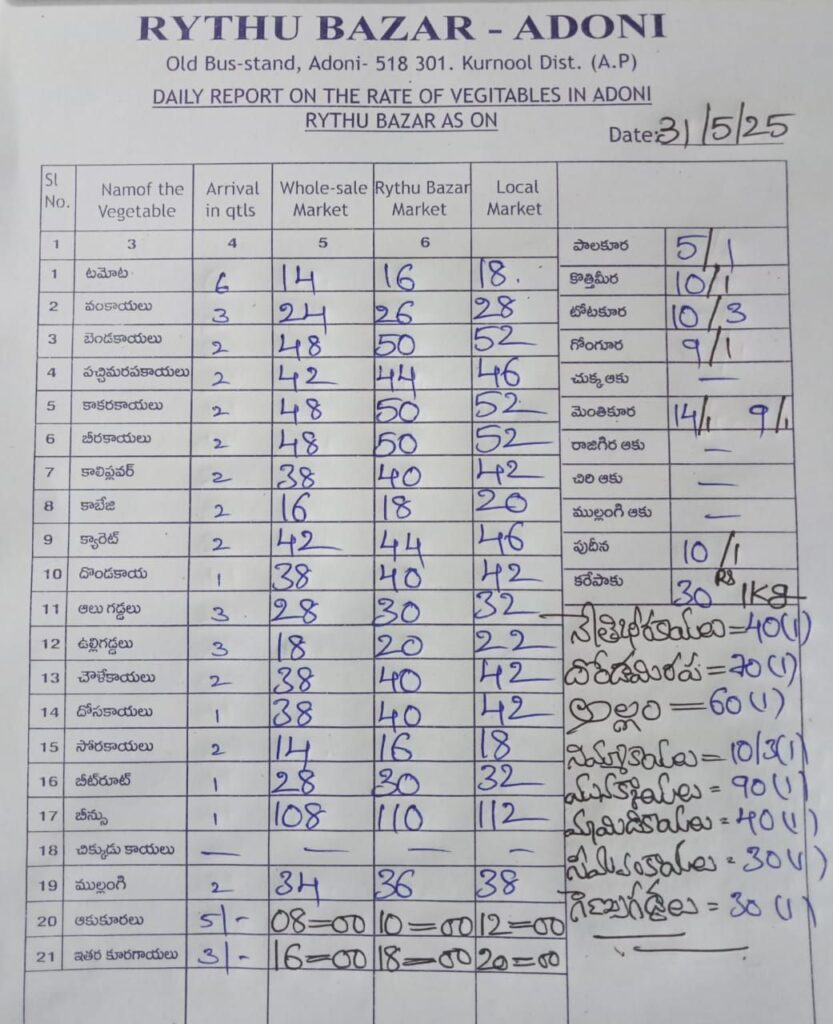 RYTHU BAZAR - ADONI
Old Bus-stand, Adoni- 518 301. Kurnool Dist. (A.P)
DAILY REPORT ON THE RATE OF VEGITABLES IN ADONI
RYTHU BAZAR AS ON
Date: 31/5/25
Sl No. Namof the Vegetable Arrival in qtls Whole-sale Market Rythu Bazar Market Local Market
1 3 4 5 6
1 టమోట 6 14 16 18.
2 వంకాయలు 3 24 26 28
3 బెండకాయలు 2 48 50 52
4 పచ్చిమిరపకాయలు 2 42 44 46
5 కాకరకాయలు 2 48 50 52
6 బీరకాయలు 2 48 50 52
7 కాలిఫ్లవర్ 2 38 40 42
8 కాబేజి 2 16 18 20
9 క్యారెట్ 2 42 44 46
10 దొండకాయ 1 38 40 42
11 ఆలు గడ్డలు 3 28 30 32
12 ఉల్లిగడ్డలు 3 18 20 22
13 చౌళేకాయలు 2 38 40 42
14 దోసకాయలు 1 38 40 42
15 సోరకాయలు 2 14 16 18
16 బీట్‌రూట్ 1 28 30 32
17 బీన్సు 1 108 110 112
18 చిక్కుడు కాయలు — — — —
19 ముల్లంగి 2 34 36 38
20 ఆకుకూరలు 5/- 08=00 10=00 12=00
21 ఇతర కూరగాయలు 3/- 16=00 18=00 20=00
పాలకూర 5/1
కొత్తిమీర 10/1
టోటకూర 10/3
గోంగూర 9/1
చుక్క ఆకు —
మెంతికూర 14/1 9/1
రాజగిర ఆకు —
చిరి ఆకు —
ముల్లంగి ఆకు —
పుదీన 10/1
కరేపాకు 30 RS 1KG
నేతిబీరకాయలు = 40(1)
= 70(1)
అల్లం = 60(1)
నిమ్మకాయలు = 10/3(1)
మునక్కాయలు = 90(1)
మామిడికాయలు = 40(1)
సీమవంకాయలు = 30(1)
గెణుసుగడ్డలు = 30(1)